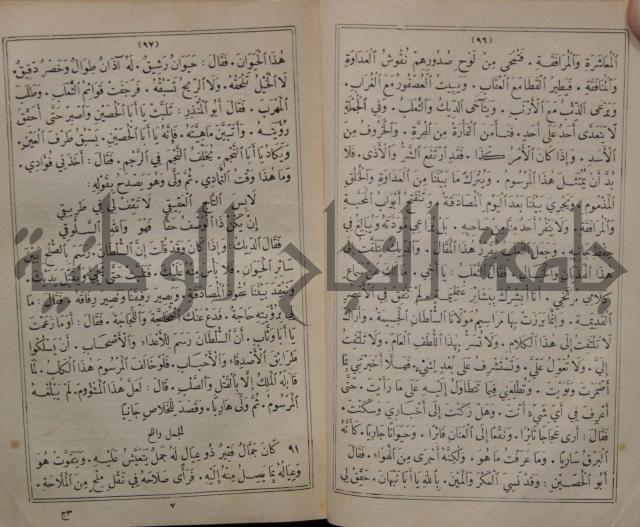 (٩٦)
الْمُعَاشَرَةِ وَالْمُرَافَقَةِ . فَتُمْحَى مِنْ لَوْحِ صُدُورِهِمْ نُقُوشُ الْعَدَاوَةِ
وَالْمُنَافَقَةِ . فَيَطِيرُ الْقَطَا مَعَ الْعُقَابِ . وَيَبِيتُ الْعُصْفُورُ مَعَ الْغُرَابِ .
وَيَرْعَى الذِّئْبُ مَعَ الْأَرْنَبِ . وَيَتَآخَى الدِّيكُ وَالثَّعْلَبُ . وَفِي الْجُمْلَةِ
لَا يَتَعَدَّى أَحَدٌ عَلَى أَحَدٍ . فَتَأْمَنُ الْفَأْرَةُ مِنَ الْهِرَّةِ . وَالْخَرُوفُ مِنَ
الْأَسَدِ . وَإِذَا كَانَ الْأَمْرُ كَذَا . فَقَدِ ارْتَفَعَ الشَّرُّ وَالْأَذَى . فَلَا
بُدَّ أَنْ يُمْتَثَلَ هٰذَا الْمَرْسُومُ . وَيُتْرَكَ مَا بَيْنَنَا مِنَ الْعَدَاوَةِ وَالْخُلْقِ
الْمَذْمُومِ وَيَجْرِيَ بَيْنَنَا بَعْدَ الْيَوْمِ الْمُصَادَقَةُ . وَتَنْفَتِحَ أَبْوَابُ الْمَحَبَّةِ
وَالْمُرَافَقَةِ . وَلَا يَنْفِرَ أَحَدٌ مِنَّا مِنْ صَاحِبِهِ . بَلْ يُرَاعِي مَوَدَّتَهُ وَيُبَالِغُ فِي
حِفْظِ جَانِبِهِ . وَجَعَلَ الثَّعْلَبُ يُقَرِّرُ هٰذَا الْمَقَالَ . وَالدِّيكُ يَتَلَفَّتُ
فَقَالَ الثَّعْلَبُ : يَا أَخِي . مَا لَكَ عَنْ سَمَاعِ
كَلَامِي مُرْتَخِي . أَنَا أُبَشِّرُكَ بِبَشَائِرَ عَظِيمَةٍ . لَمْ تَتَّفِقْ فِي الْأَعْصُرِ
الْقَدِيمَةِ . وَإِنَّمَا بَرَزَتْ بِهَا مَرَاسِيمُ مَوْلَانَا السُّلْطَانِ الْجَسِيمَةُ . وَأَرَاكَ
لَا تَلْتَفِتُ إِلَى هٰذَا الْكَلَامِ . وَلَا تُسَرُّ بِهٰذَا اللُّطْفِ الْعَامِّ . وَلَا تَلْتَفِتُ
إِلَيَّ . وَلَا تُعَوِّلُ عَلَيَّ . وَتَسْتَشْرِفُ عَلَى بُعْدٍ لِشَيْءٍ . فَهَلَّا أَخْبَرْتَنِي بِمَا
أَضْمَرْتَ وَنَوَيْتَ . وَتُطْلِعُنِي فِيمَا تَتَطَاوَلُ إِلَيْهِ عَلَى مَا رَأَيْتَ . حَتَّى
أَعْرِفَ فِي أَيِّ شَيْءٍ أَنْتَ . وَهَلْ رَكَنْتَ إِلَى أَخْبَارِي وَسَكَنْتَ .
فَقَالَ : أَرَى عَجَاجًا ثَائِرًا . وَنَقْعًا إِلَى الْعَنَانِ فَائِرًا . وَحَيَوَانًا جَارِيًا . كَأَنَّهُ
الْبَرْقُ سَارِيًا . وَمَا عَرَفْتُ مَا هُوَ . وَلٰكِنَّهُ أَجْرَى مِنَ الْهَوَاءِ . فَقَالَ
أَبُو الْحُصَيْنِ : وَقَدْ نَسِيَ الْمَكْرَ وَالْمَيْنَ . بِاللّٰهِ يَا أَبَا نَبْهَانَ . حَقِّقْ لِي
(٩٧)
هٰذَا الْحَيَوَانَ . فَقَالَ : حَيَوَانٌ رَشِيقٌ . لَهُ آذَانٌ طِوَالٌ وَخَصْرٌ دَقِيقٌ .
لَا الْخَيْلُ تَلْحَقُهُ . وَلَا الرِّيحُ تَسْبِقُهُ . فَرَجَفَتْ قَوَائِمُ الثَّعْلَبِ . وَطَلَبَ
الْمَهْرَبَ . فَقَالَ أَبُو الْمُنْذِرِ : تَلَبَّثْ يَا أَبَا الْحُصَيْنِ وَاصْبِرْ حَتَّى أُحَقِّقَ
رُؤْيَتَهُ . وَأَتَبَيَّنَ مَاهِيَّتَهُ . فَإِنَّهُ يَا أَبَا الْحُصَيْنِ . يَسْبِقُ طَرْفَ الْعَيْنِ .
وَيَكَادُ يَا أَبَا النَّجْمِ . يُخَلِّفُ النَّجْمَ فِي الرَّجْمِ . فَقَالَ : أَخَذَنِي فُؤَادِي .
وَمَا هٰذَا وَقْتُ التَّمَادِي . ثُمَّ وَلَّى وَهُوَ يَصْدَحُ بِقَوْلِهِ :
لَابِسَ التَّاجِ الْعَقِيقِي لَا تَقِفْ لِي فِي طَرِيقِي
إِنْ يَكُنْ ذَا الْوَصْفُ حَقًّا فَهُوَ وَاللّٰهِ السَّلُوقِي
فَقَالَ الدِّيكُ : وَإِذَا كَانَ وَقَدْ قُلْتَ إِنَّ السُّلْطَانَ . رَسَمَ بِالصُّلْحِ بَيْنَ
سَائِرِ الْحَيَوَانِ . فَلَا بَأْسَ مِنْهُ عَلَيْكَ .
وَنَعْقِدَ بَيْنَنَا عُقُودَ الْمُصَادَقَةِ . وَيَصِيرَ رَفِيقَنَا وَنَصِيرَ رِفَاقَهُ . فَقَالَ : مَا
لِي بِرُؤْيَتِهِ حَاجَةٌ . فَدَعْ عَنْكَ الْمُحَاجَّةَ وَاللَّجَاجَةَ . فَقَالَ : أَوَ مَا زَعَمْتَ
يَا أَبَا وَثَّابٍ . أَنَّ السُّلْطَانَ رَسَمَ لِلْأَعْدَاءِ وَالْأَصْحَابِ . أَنْ يَسْلُكُوا
طَرَائِقَ الْأَصْدِقَاءِ وَالْأَحْبَابِ . فَلَوْ خَالَفَ الْمَرْسُومَ هٰذَا الْكَلْبُ . لَمَا
قَابَلَهُ الْمَلِكُ إِلَّا بِالْقَتْلِ وَالصَّلْبِ . قَالَ : لَعَلَّ هٰذَا الْمَشْؤُومَ . لَمْ يَبْلُغْهُ
الْمَرْسُومُ . ثُمَّ وَلَّى هَارِبًا . وَقَصَدَ لِلْخَلَاصِ جَانِبًا
الجمل والملح
٩١ كَانَ جَمَّالٌ فَقِيرٌ ذُو عِيَالٍ لَهُ جَمَلٌ يَتَعَيَّشُ عَلَيْهِ . وَيَتَقَوَّتُ هُوَ
وَعِيَالُهُ بِمَا يَصِلُ مِنْهُ إِلَيْهِ . فَرَأَى صَلَاحَهُ فِي نَقْلِ مِلْحٍ مِنَ الْمَلَّاحَةِ .
٧ ج٣
جامعة النجاح الوطنية